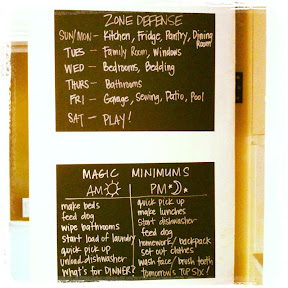 ZONE DEFENSE
SUN/MON- Kitchen, Fridge, Pantry, Dining Room
TUES - Family Room, Windows
WED - Bedrooms, Bedding
THURS - Bathrooms
FRI - Garage, Sewing, Patio, Pool
SAT - PLAY!
MAGIC MINIMUMS
AM
make beds
feed dog
wipe bathrooms
start load of laundry
quick pick up
unload dishwasher
What's for DINNER?
PM
quick pick up
make lunches
start dishwasher
feed dog
homework/backpack
set out clothes
wash face/brush teeth
tomorrow's TOP SIX!